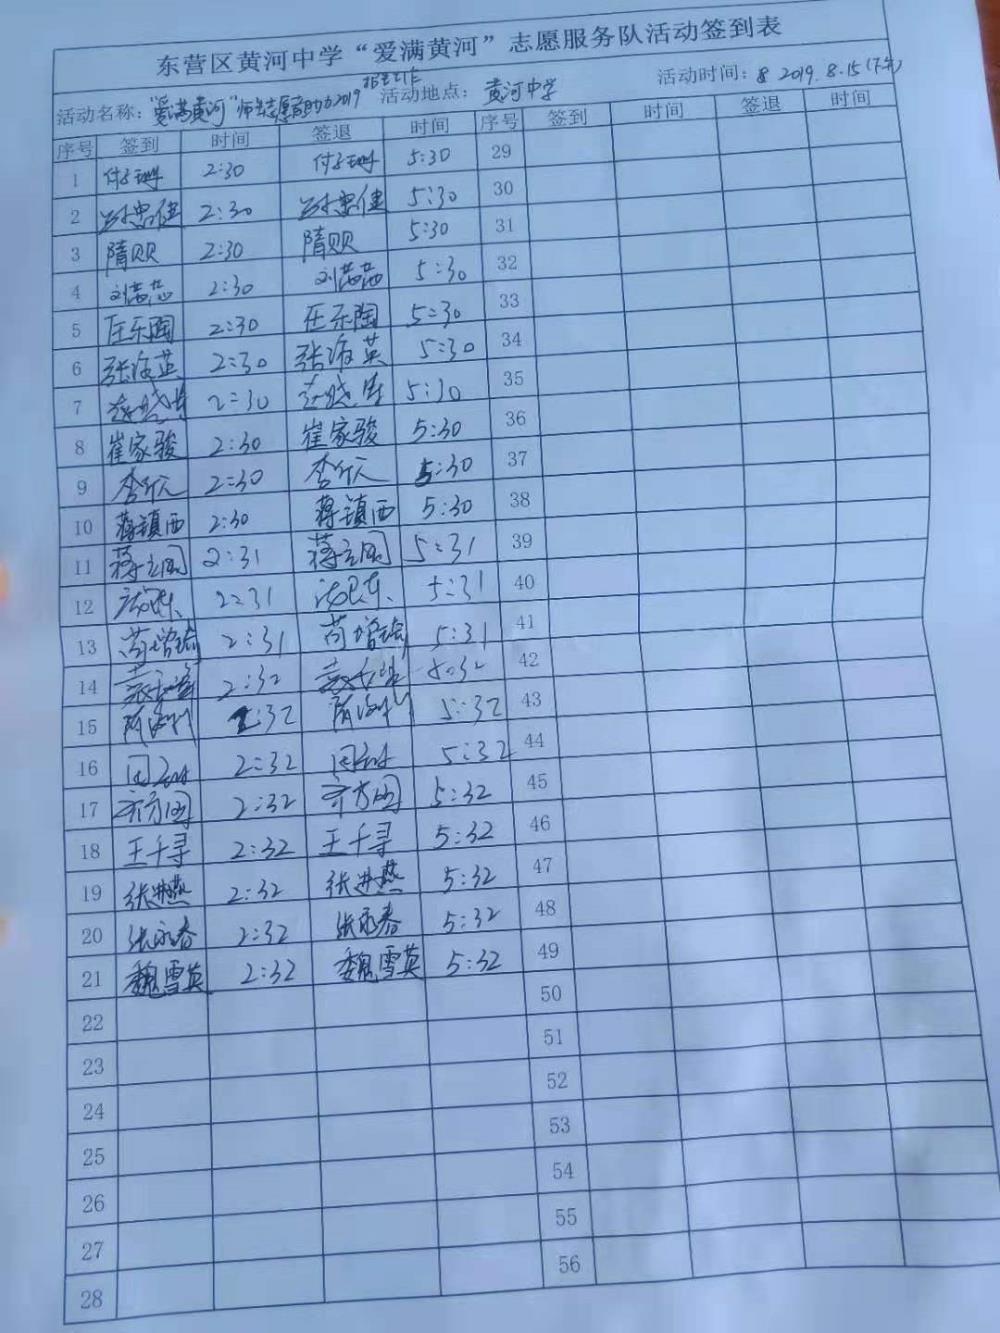 东营区黄河中学“爱满黄河”志愿服务队活动签到表
活动名称：“爱满黄河”师生志愿 助力2019 招生工作 活动地点：黄河中学 活动时间：8 2019.8.15(下午)
序号 签到 时间 签退 时间 序号 签到 时间 签退 时间
1 付珊 2:30 付珊 5:30 29
2 忠健 2:30 忠健 5:30 30
3 隋贝 2:30 隋贝 5:30 31
4 刘 2:30 刘 5:30 32
5 庄乐陶 2:30 庄乐陶 5:30 33
6 张海英 2:30 张海英 5:30 34
7 2:30 5:30 35
8 崔家骏 2:30 崔家骏 5:30 36
9 李 2:30 李 5:30 37
10 蒋镇西 2:30 蒋镇西 5:30 38
11 蒋立国 2:31 蒋立国 5:31 39
12 2:31 5:31 40
13 尚增瑜 2:31 尚增瑜 5:31 41
14 2:32 5:32 42
15 2:32 5:32 43
16 2:32 5:32 44
17 齐方园 2:32 齐方园 5:32 45
18 王千寻 2:32 王千寻 5:32 46
19 张燕 2:32 张燕 5:32 47
20 张永春 2:32 张永春 5:32 48
21 魏雪英 2:32 魏雪英 5:32 49
22 50
23 51
24 52
25 53
26 54
27 55
28 56